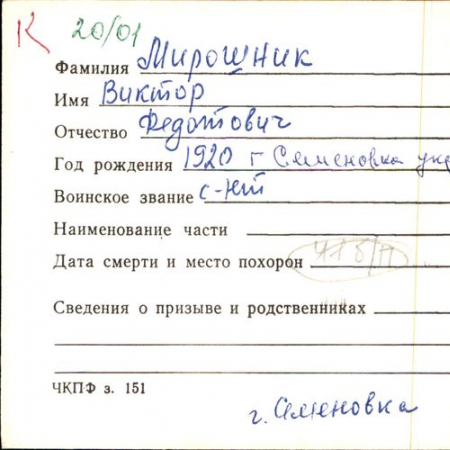 К 20/01
Фамилия Мирошник
Имя Виктор
Отчество Федотович
Год рождения 1920 г Семеновка
Воинское звание с-нт
Наименование части
Дата смерти и место похорон
Сведения о призыве и родственниках
ЧКПФ з. 151
г. Семеновка